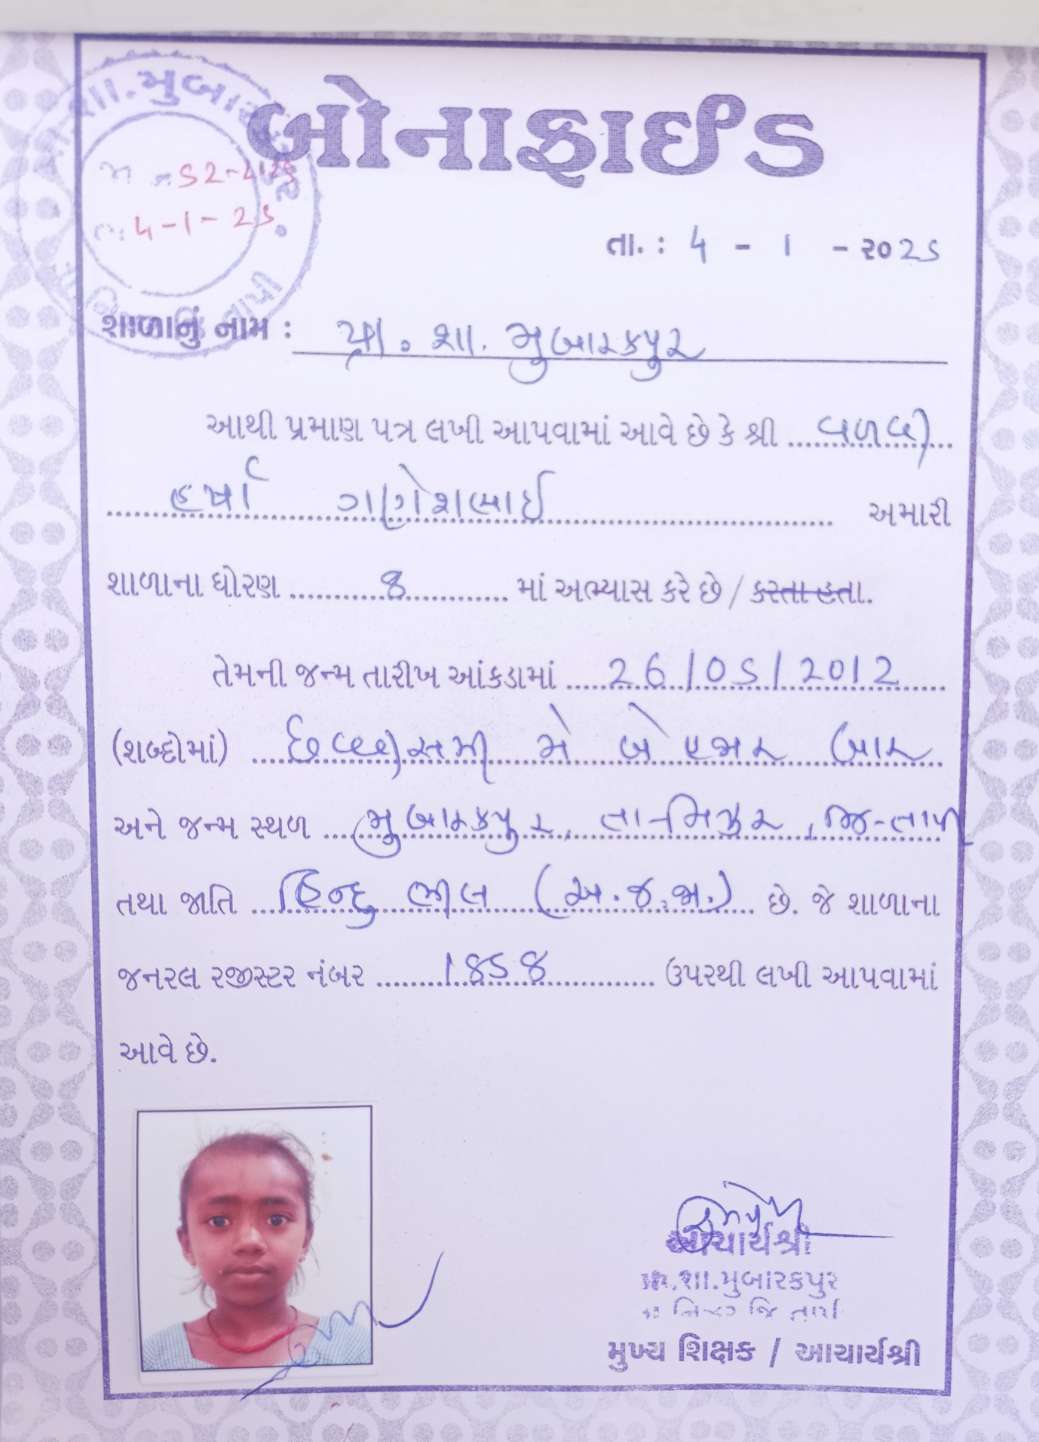 બોનાફાઈડ
તા. : 4 - 1 - ૨૦25
શાળાનું નામ : પ્રા. શા. મુબારકપુર
આથી પ્રમાણ પત્ર લખી આપવામાં આવે છે કે શ્રી વળવી
હર્ષા ગણેશભાઈ અમારી
શાળાના ધોરણ 8 માં અભ્યાસ કરે છે / કરતા હતા.
તેમની જન્મ તારીખ આંકડામાં 26/05/2012
(શબ્દોમાં) છવ્વીસમી મે બે હજાર બાર
અને જન્મ સ્થળ મુબારકપુર, તા-નિઝર, જિ-તાપી
તથા જાતિ હિન્દુ ભીલ (અ.જ.જા.) છે. જે શાળાના
જનરલ રજીસ્ટર નંબર 1858 ઉપરથી લખી આપવામાં
આવે છે.
આચાર્યશ્રી
પ્રા.શા.મુબારકપુર
તા નિઝર જિ તાપી
મુખ્ય શિક્ષક / આચાર્યશ્રી